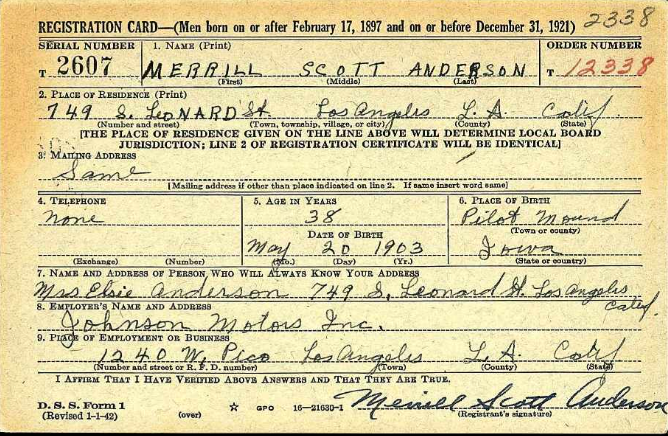 REGISTRATION CARD—(Men born on or after February 17, 1897 and on or before December 31, 1921) 2338
SERIAL NUMBER 1. NAME (Print) ORDER NUMBER
T 2607 MERRILL SCOTT ANDERSON T 12338
(First) (Middle) (Last)
2. PLACE OF RESIDENCE (Print)
749 S. LEONARD St. Los Angeles L. A. Calif
(Number and street) (Town, township, village, or city) (County) (State)
[THE PLACE OF RESIDENCE GIVEN ON THE LINE ABOVE WILL DETERMINE LOCAL BOARD
JURISDICTION; LINE 2 OF REGISTRATION CERTIFICATE WILL BE IDENTICAL]
3. MAILING ADDRESS
Same
[Mailing address if other than place indicated on line 2. If same insert word same]
4. TELEPHONE 5. AGE IN YEARS 6. PLACE OF BIRTH
None 38 Pilot Mound
DATE OF BIRTH (Town or county)
May 20 1903 Iowa
(Exchange) (Number) (Mo.) (Day) (Yr.) (State or country)
7. NAME AND ADDRESS OF PERSON WHO WILL ALWAYS KNOW YOUR ADDRESS
Mrs Elsie Anderson 749 S. Leonard St. Los Angeles
Calif.
8. EMPLOYER'S NAME AND ADDRESS
Johnson Motors Inc.
9. PLACE OF EMPLOYMENT OR BUSINESS
1240 W. Pico Los Angeles L. A. Calif
(Number and street or R. F. D. number) (Town) (County) (State)
I AFFIRM THAT I HAVE VERIFIED ABOVE ANSWERS AND THAT THEY ARE TRUE.
D. S. S. Form 1
(Revised 1-1-42) (over) ☆ GPO 16—21630-1 Merrill Scott Anderson
(Registrant's signature)